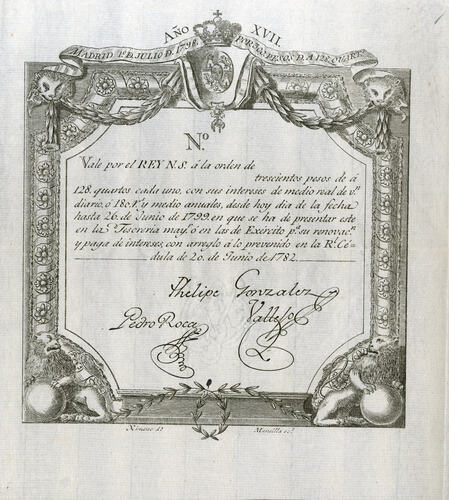 AÑO XVII.
MADRID 1º D. JULIO D. 1798. POR 300 PESOS D. A 128 QUARTS.
N.º
Vale por el REY N.S. á la orden de
trescientos pesos de á
128. quartos cada uno, con sus intereses de medio real de v.n
diario, ó 180.r.s y medio anuales, desde hoy dia de la fecha
hasta 26. de Junio de 1799. en que se ha de presentar este
en la Tesorería may.r ó en las de Exército p.a su renovac.n
y paga de intereses, con arreglo á lo prevenido en la R.l Cé-
dula de 20. de Junio de 1782.
Phelipe Gonzalez
Pedro Roca Vallejo
Ximeno d.º Mansilla sc.t